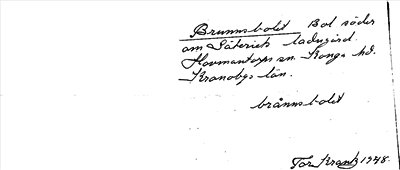 Brunnsbolet Bol söder
om Säterich ladugård.
Hovmantorps sn. Konga hd.
Kronobgs län.
brånnsbolet
Tor Krantz 1948.